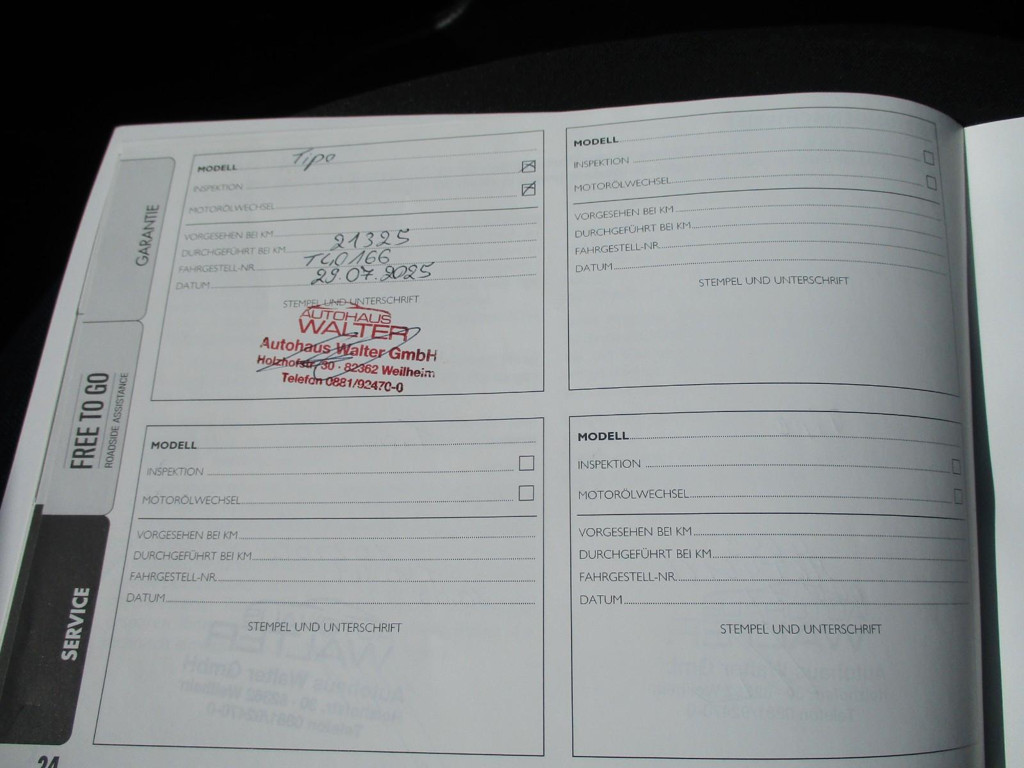 GARANTIE
FREE TO GO
ROADSIDE ASSISTANCE
SERVICE
24
MODELL Tipo
INSPEKTION
MOTORÖLWECHSEL
VORGESEHEN BEI KM
DURCHGEFÜHRT BEI KM 21325
FAHRGESTELL-NR. T40166
DATUM 29.07.2025
STEMPEL UND UNTERSCHRIFT
AUTOHAUS
WALTER
Autohaus Walter GmbH
Holzhofstr. 30 · 82362 Weilheim
Telefon 0881/92470-0
MODELL
INSPEKTION
MOTORÖLWECHSEL
VORGESEHEN BEI KM
DURCHGEFÜHRT BEI KM
FAHRGESTELL-NR.
DATUM
STEMPEL UND UNTERSCHRIFT
MODELL
INSPEKTION
MOTORÖLWECHSEL
VORGESEHEN BEI KM
DURCHGEFÜHRT BEI KM
FAHRGESTELL-NR.
DATUM
STEMPEL UND UNTERSCHRIFT
MODELL
INSPEKTION
MOTORÖLWECHSEL
VORGESEHEN BEI KM
DURCHGEFÜHRT BEI KM
FAHRGESTELL-NR.
DATUM
STEMPEL UND UNTERSCHRIFT